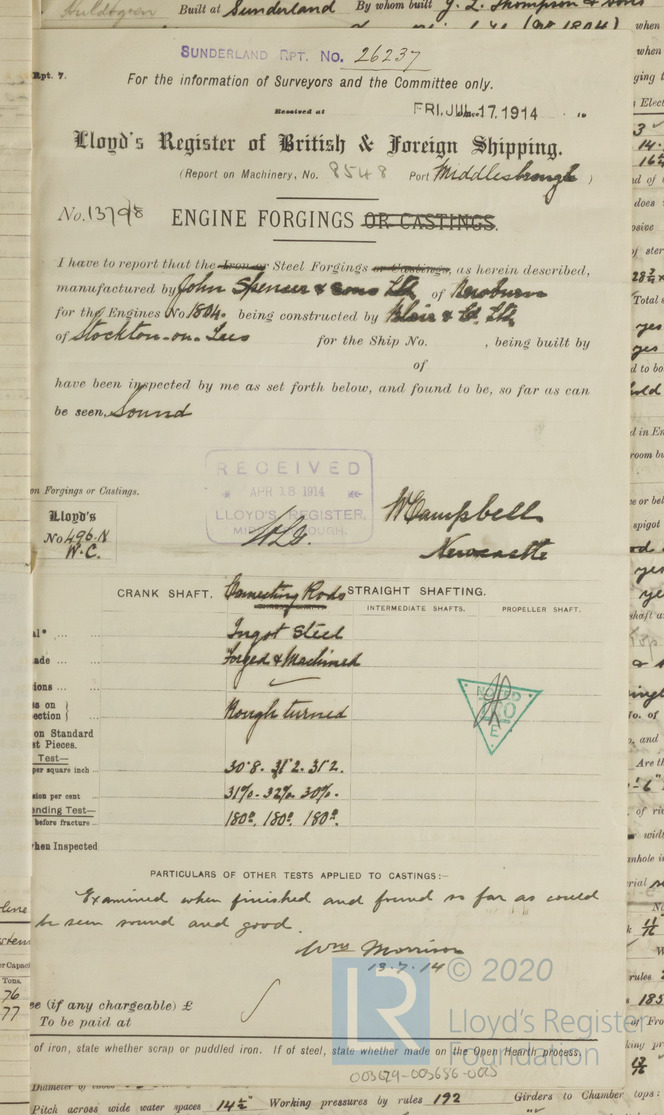 Built at Sunderland By whom built J. L. Thompson & Sons
(No 1804)
SUNDERLAND RPT. No. 26237
Rpt. 7.
For the information of Surveyors and the Committee only.
Received at FRI. JUL. 17. 1914
Lloyd's Register of British & Foreign Shipping.
(Report on Machinery, No. 8548 Port Middlesbrough )
No. 13798 ENGINE FORGINGS OR CASTINGS.
I have to report that the Iron or Steel Forgings or Castings, as herein described,
manufactured by John Spencer & Sons Ltd of Newburn
for the Engines No 1804. being constructed by Blair & Co. Ltd.
of Stockton-on-Tees for the Ship No. , being built by
of
have been inspected by me as set forth below, and found to be, so far as can
be seen, Sound
RECEIVED
APR 18 1914
LLOYD'S REGISTER,
on Forgings or Castings.
Lloyd's
No 496.N
W.C.
W Campbell
Newcastle
CRANK SHAFT. Connecting Rods STRAIGHT SHAFTING.
INTERMEDIATE SHAFTS. PROPELLER SHAFT.
Ingot Steel
Forged & Machined
Rough turned
NOTED
on Standard
st Pieces.
Test—
per square inch 30·8. 31·2. 31·2.
sion per cent 31%. 32%. 30%.
ending Test—
before fracture 180°. 180°. 180°.
hen Inspected
PARTICULARS OF OTHER TESTS APPLIED TO CASTINGS:—
Examined when finished and found so far as could
be seen sound and good.
Wm Morrison
13.7.14
ee (if any chargeable) £
To be paid at
of iron, state whether scrap or puddled iron. If of steel, state whether made on the Open Hearth process.
© 2020
LR
Lloyd's Register
Foundation
Pitch across wide water spaces 14½" Working pressures by rules 192 Girders to Chamber tops: